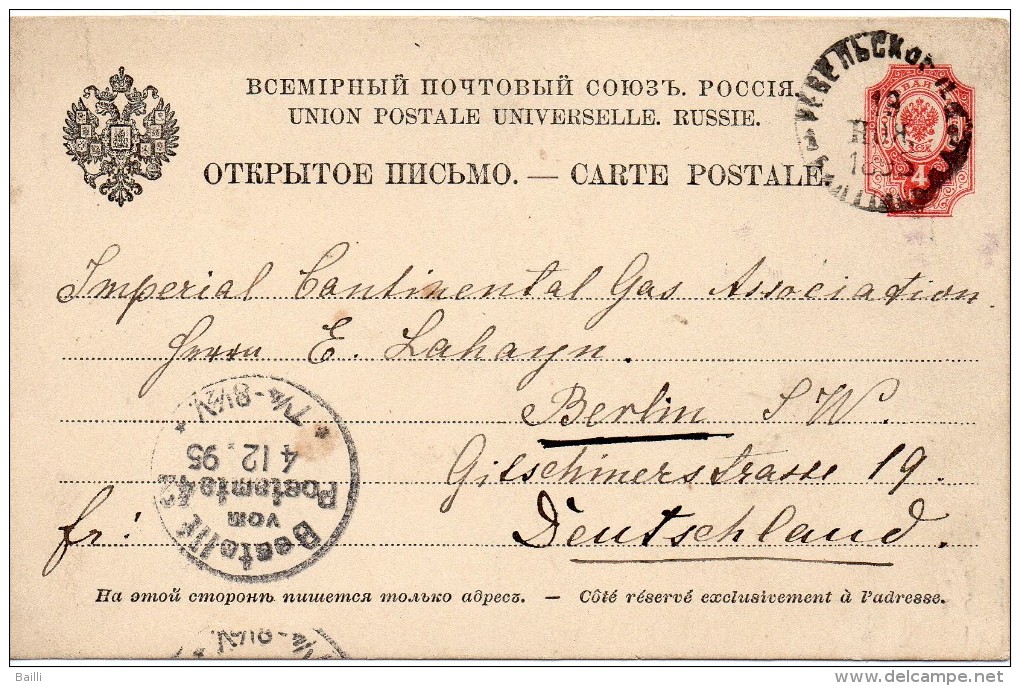 ВСЕМІРНЫЙ ПОЧТОВЫЙ СОЮЗЪ. РОССІЯ.
UNION POSTALE UNIVERSELLE. RUSSIE.
ОТКРЫТОЕ ПИСЬМО. — CARTE POSTALE.
4
Imperial Continental Gas Association.
Herrn E. Lahayn.
Berlin S W.
Gitschinerstrasse 19.
fr:
Deutschland.
Bestellt
vom
Postamte 42
4 12. 95
* 7¼-8½V. *
На этой сторонѣ пишется только адресъ. — Côté réservé exclusivement à l'adresse.
¼-8½V.
Bailli
delcampe.net